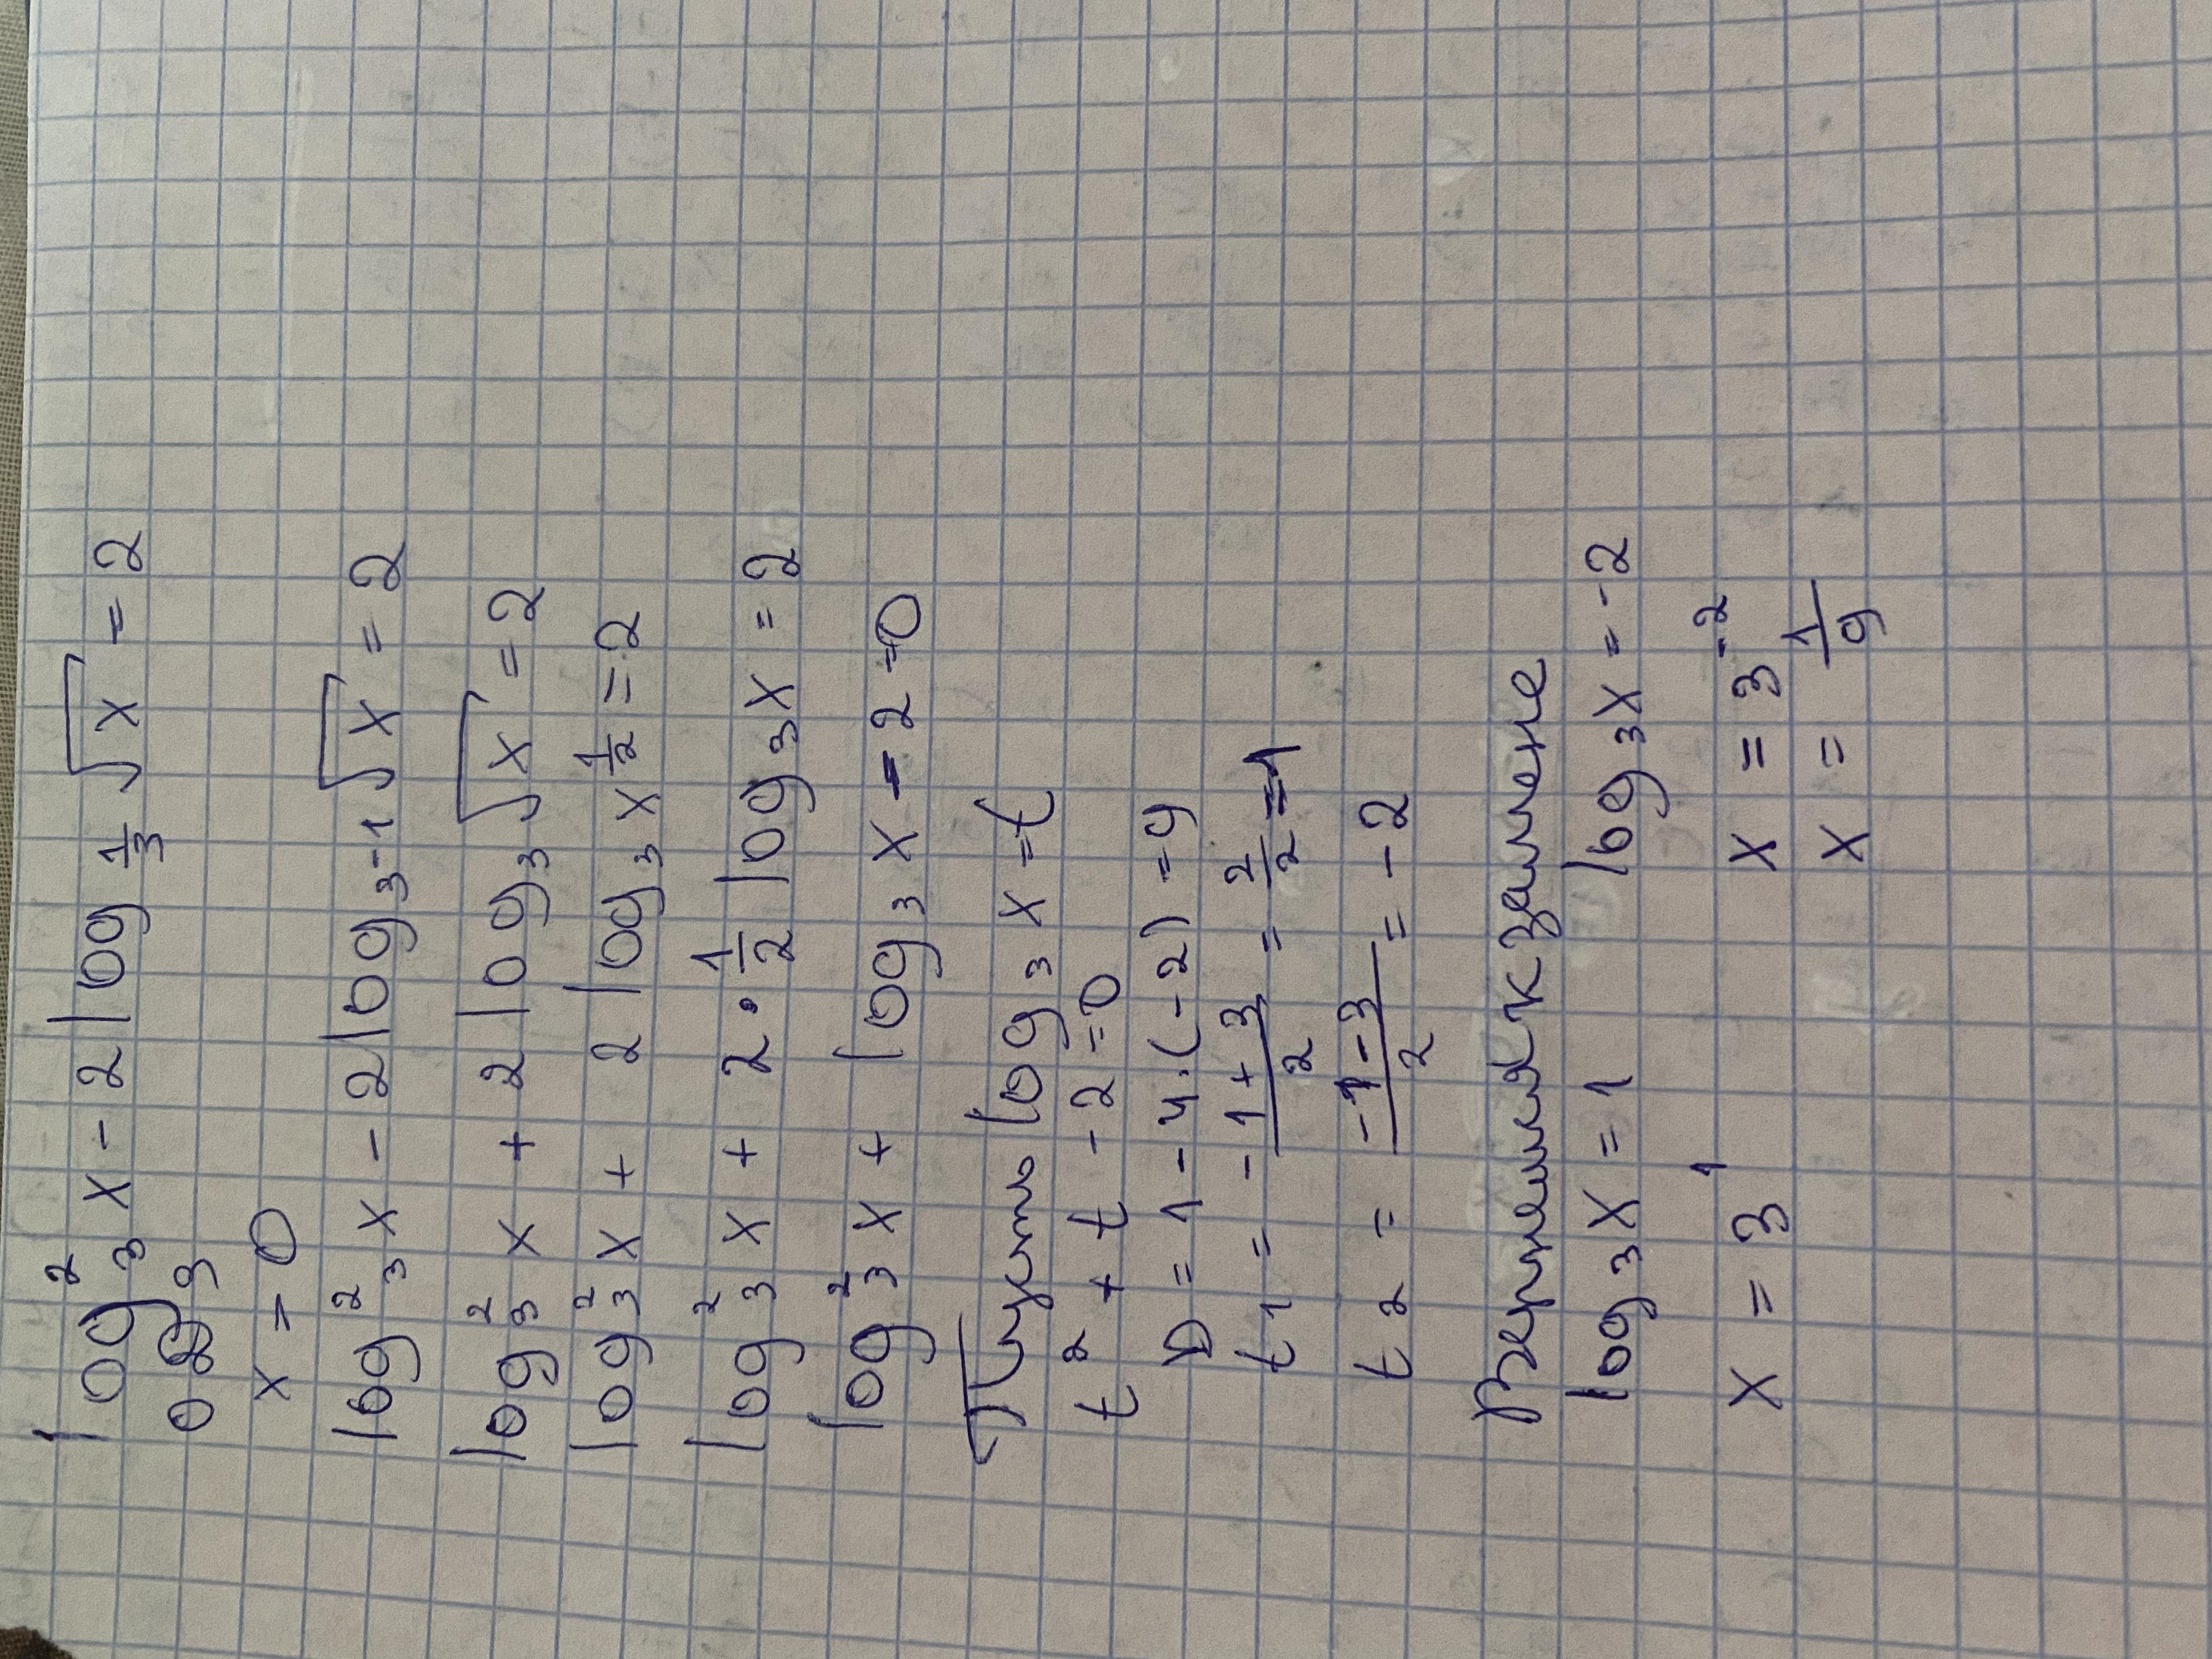 log²₃x - 2 log_{1/3} √x = 2
ОДЗ
x = 0
log²₃x - 2 log_{3⁻¹} √x = 2
log²₃x + 2 log₃ √x = 2
log²₃x + 2 log₃ x^{1/2} = 2
log²₃x + 2 · 1/2 log₃x = 2
log²₃x + log₃x - 2 = 0
Пусть log₃x = t
t² + t - 2 = 0
D = 1 - 4 · (-2) = 9
t₁ = (-1+3)/2 = 2/2 = 1
t₂ = (-1-3)/2 = -2
Вернемся к замене
log₃x = 1 log₃x = -2
x = 3¹ x = 3⁻²
x = 1/9